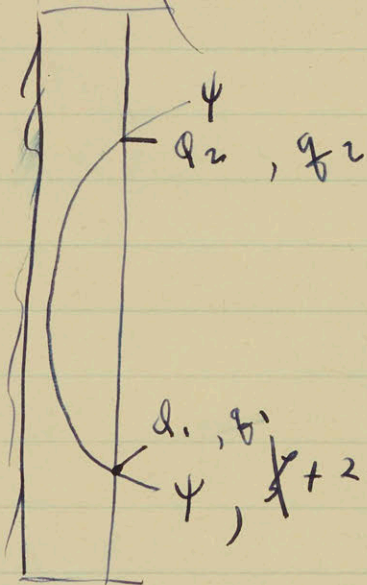 ψ
Q₂, q₂
Q₁, q₁
ψ, + 2